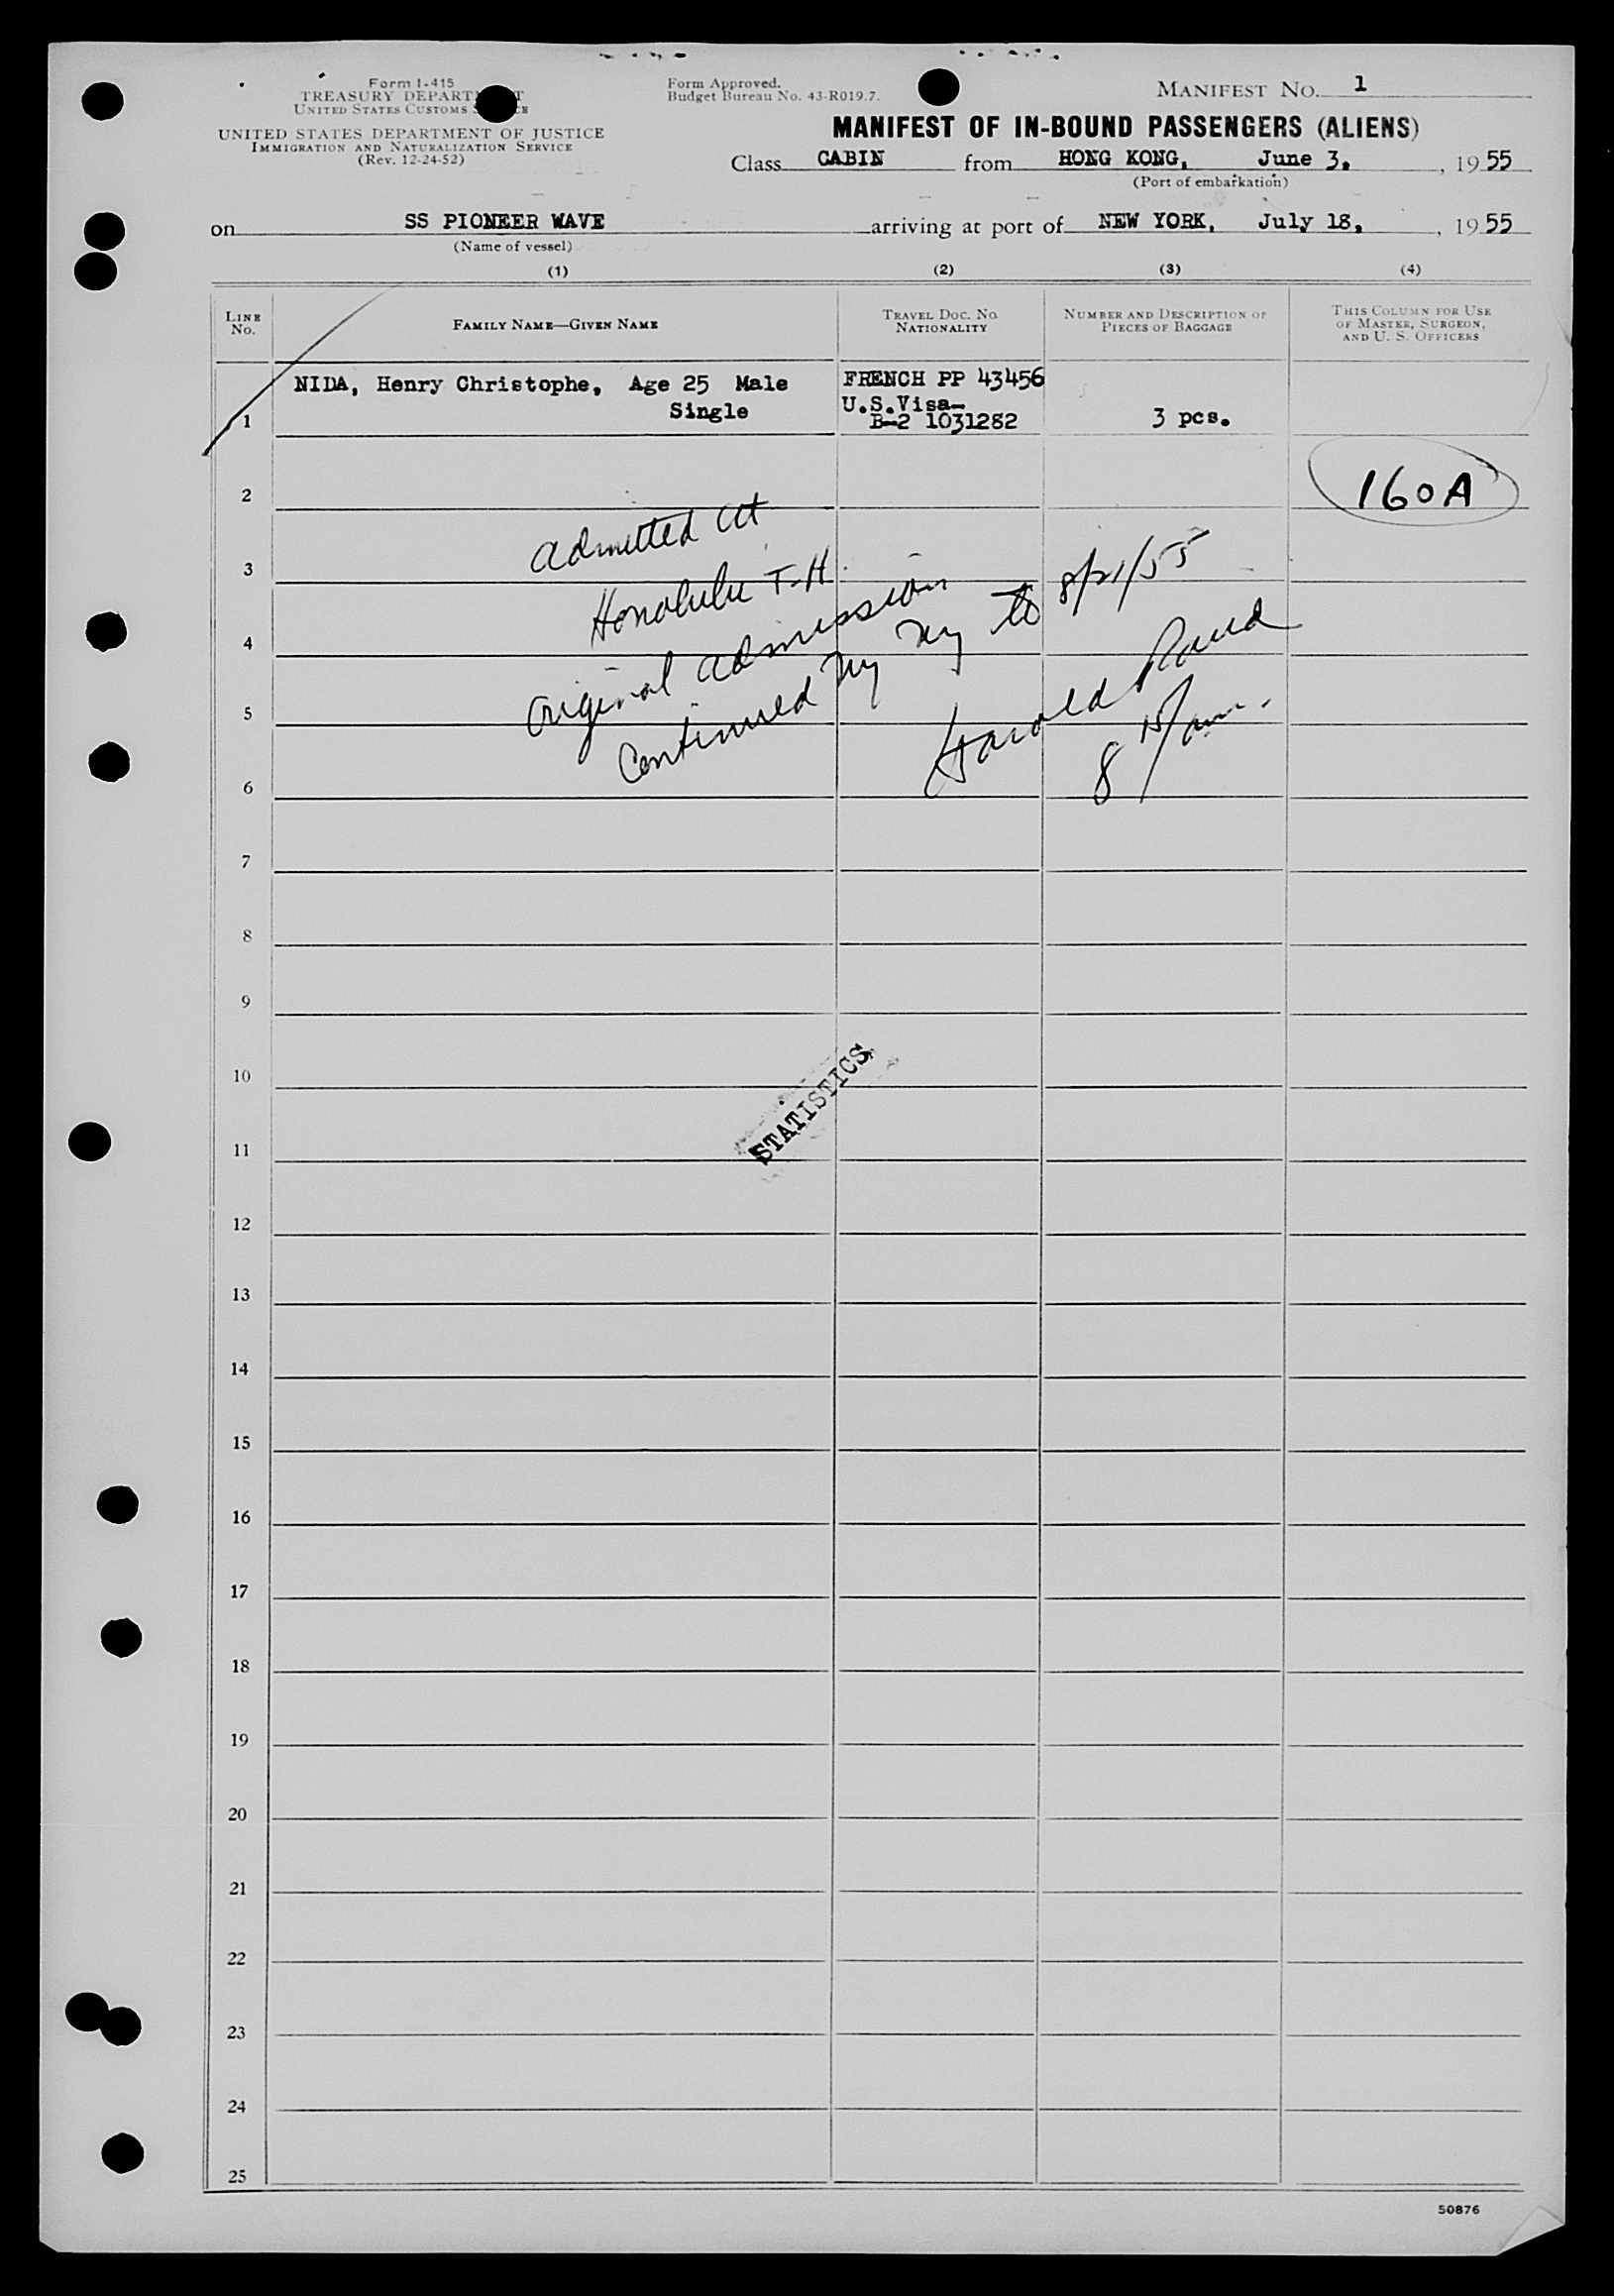 Form I-415
TREASURY DEPARTMENT
UNITED STATES CUSTOMS SERVICE
UNITED STATES DEPARTMENT OF JUSTICE
IMMIGRATION AND NATURALIZATION SERVICE
(Rev. 12-24-52)
Form Approved.
Budget Bureau No. 43-R019.7.
MANIFEST NO. 1
MANIFEST OF IN-BOUND PASSENGERS (ALIENS)
Class CABIN from HONG KONG, June 3, , 19 55
(Port of embarkation)
on SS PIONEER WAVE arriving at port of NEW YORK, July 18, , 19 55
(Name of vessel)
(1) (2) (3) (4)
LINE NO.
FAMILY NAME—GIVEN NAME
TRAVEL DOC. NO.
NATIONALITY
NUMBER AND DESCRIPTION OF
PIECES OF BAGGAGE
THIS COLUMN FOR USE
OF MASTER, SURGEON,
AND U. S. OFFICERS
1 NIDA, Henry Christophe, Age 25 Male
Single
FRENCH PP 43456
U.S.Visa-
B-2 1031282
3 pcs.
160A
2
Admitted at
3
Honolulu T-H.
4
Original admission
5
Continued NY NY to 8/21/55
Harold
8 15/am.
6
7
8
9
10
STATISTICS
11
12
13
14
15
16
17
18
19
20
21
22
23
24
25
50876